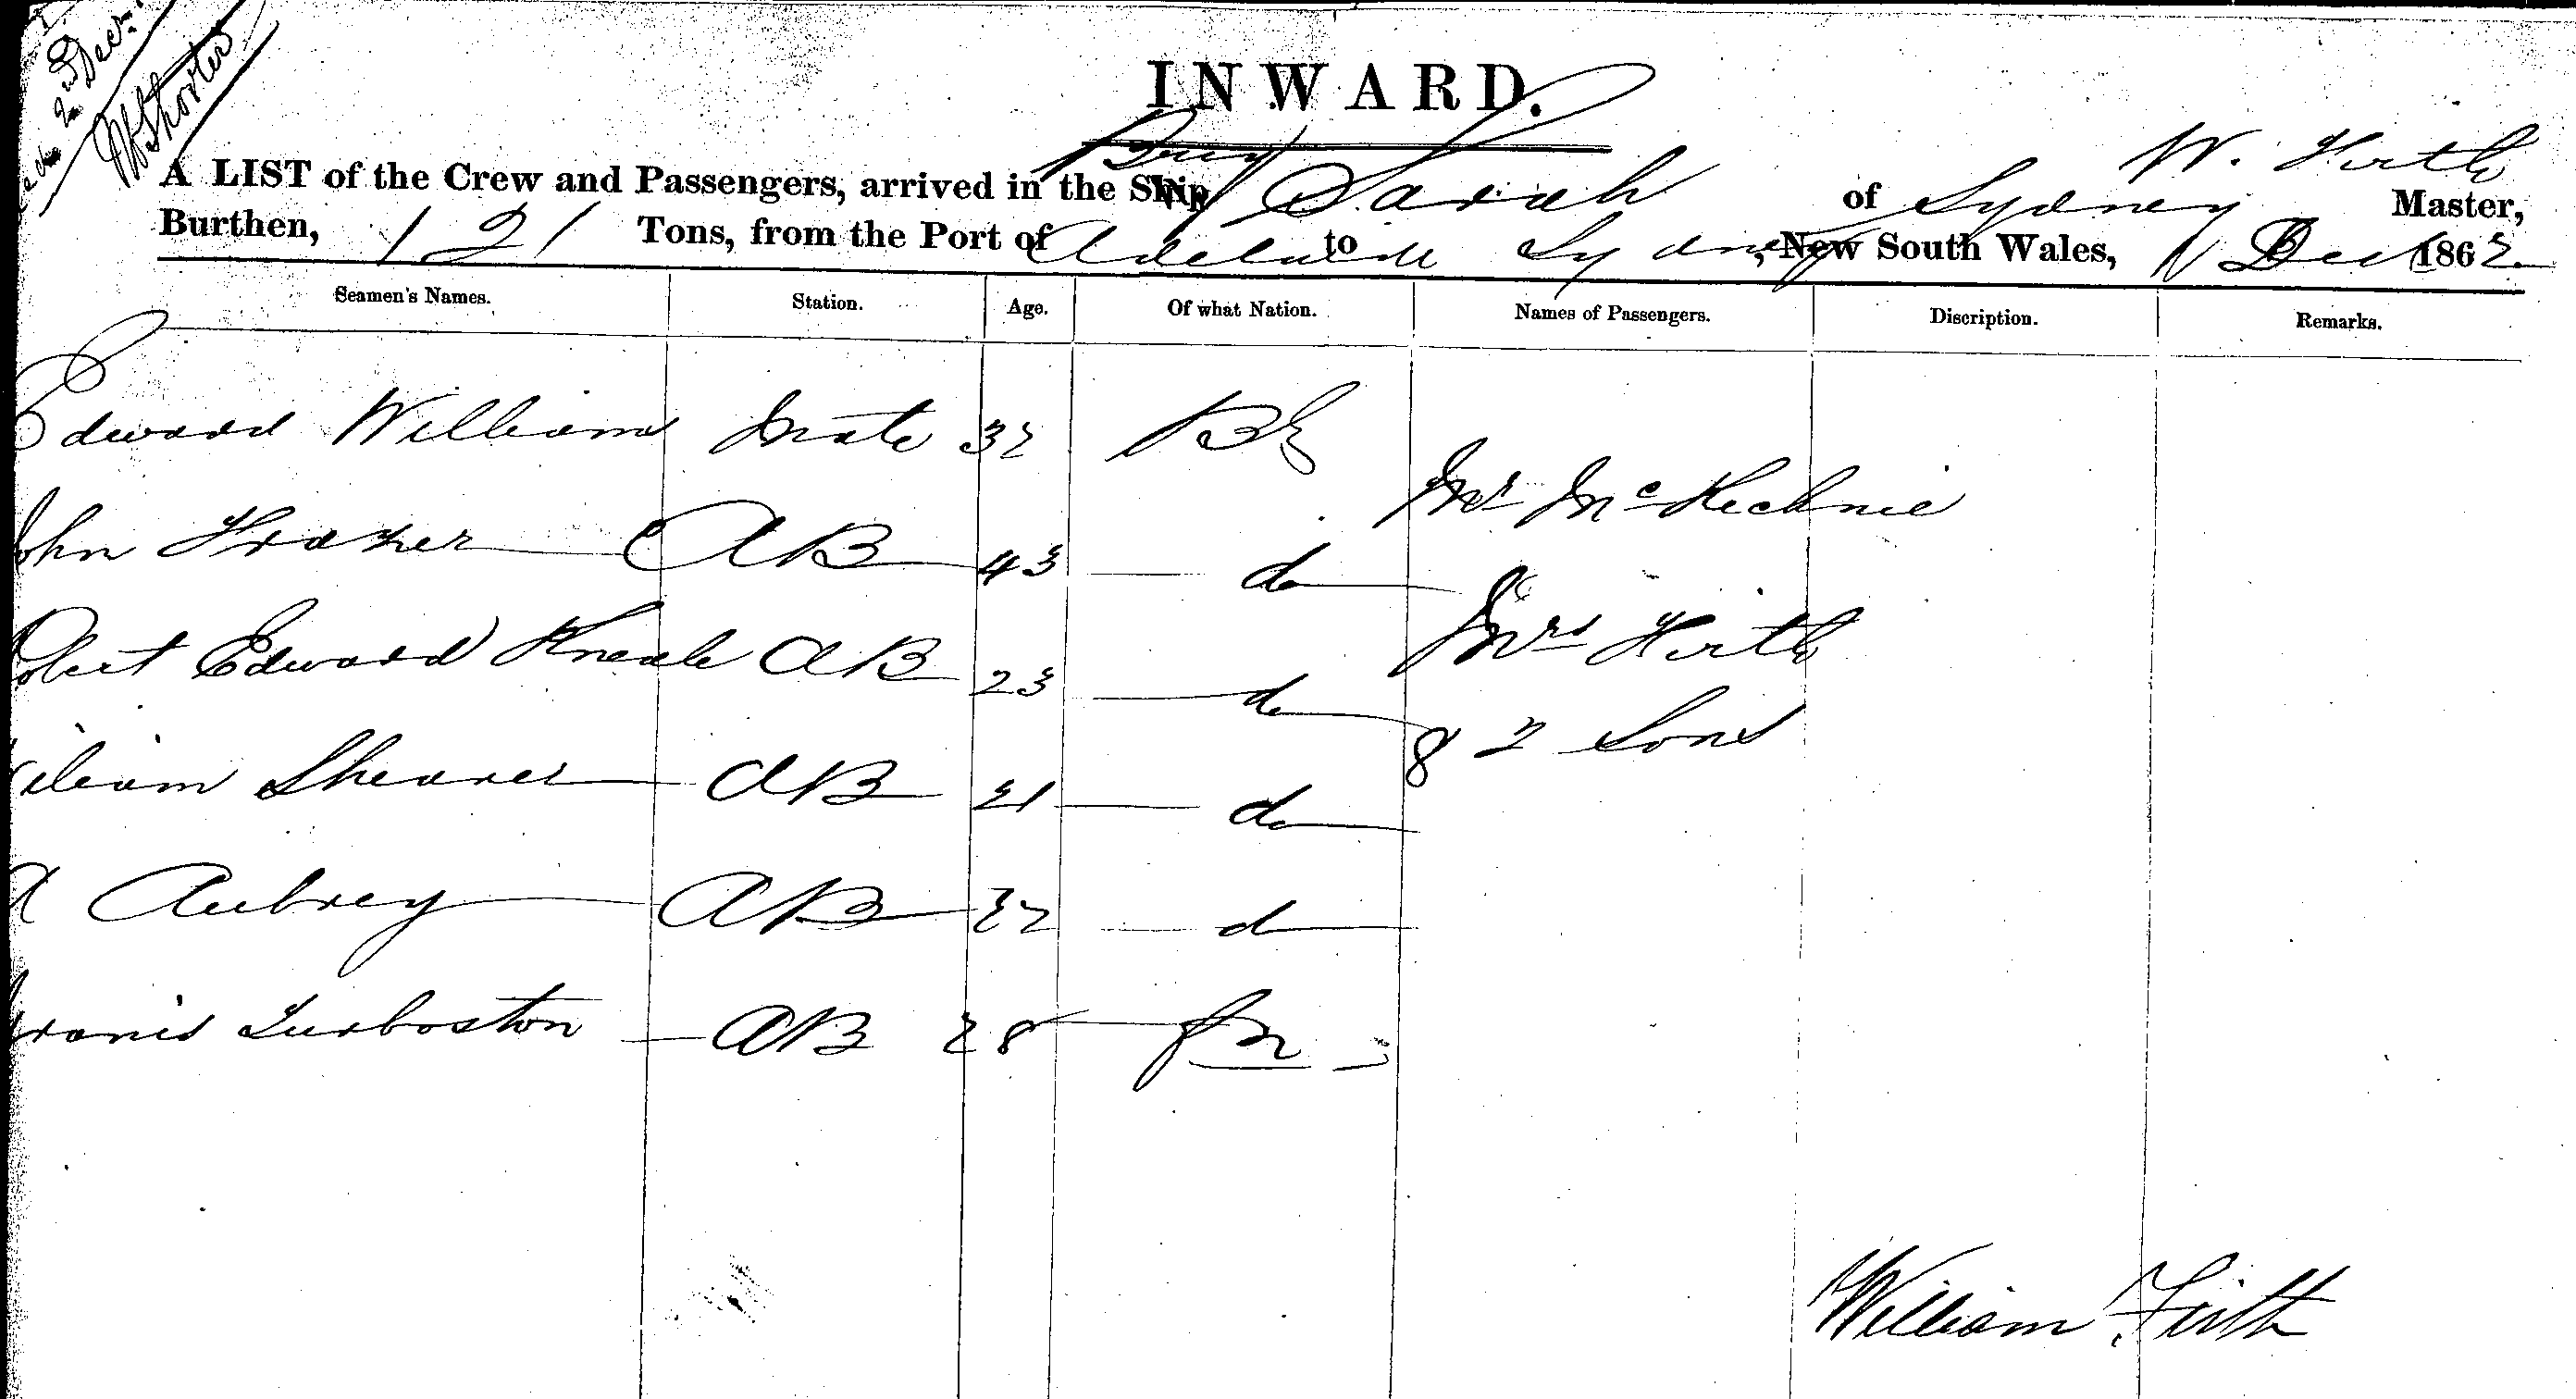 2nd Decr.
INWARD.
W. Firth
A LIST of the Crew and Passengers, arrived in the Ship Brig Sarah of Sydney Master,
Burthen, 121 Tons, from the Port of Adelaide to Sydney, New South Wales, 1 Dec 1862.
Seamen's Names. Station. Age. Of what Nation. Names of Passengers. Discription. Remarks.
Edward Williams Mate 32
Mr McKechnie
John Frazer AB 43 do
Mrs Firth
Robert Edward Kneale AB 23 do
& 2 Sons
William Shearer AB 21 do
A Aubrey AB 22 do
AB 28
William Firth